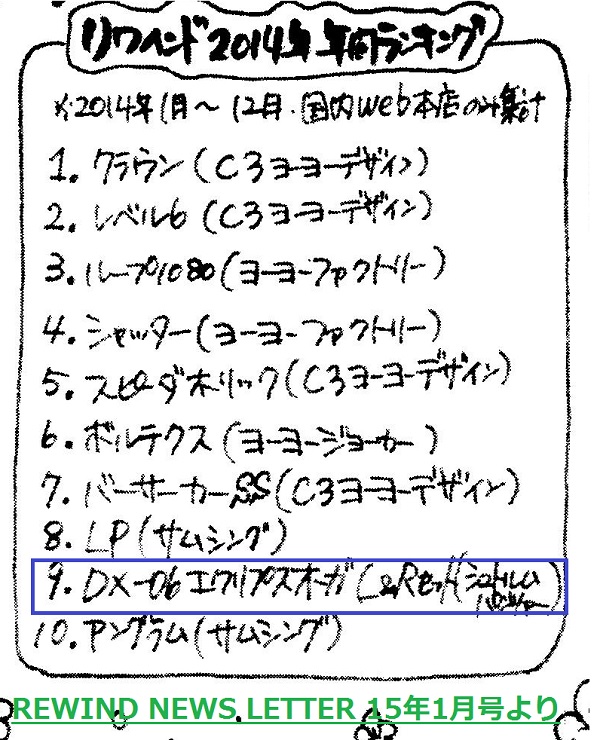 リワインド2014年年間ランキング
※2014年1月～12月.国内web本店のみ集計
1. クラウン(C3ヨーヨーデザイン)
2. レベル6 (C3ヨーヨーデザイン)
3. ループ1080(ヨーヨーファクトリー)
4. シャッター(ヨーヨーファクトリー)
5. スピーダホリック(C3ヨーヨーデザイン)
6. ボルテクス (ヨーヨージョーカー)
7. バーサーカーSS(C3ヨーヨーデザイン)
8. LP(サムシング)
9. DX-06 エクリプスオーガ L&Rセット(シュトルムパンツァー)
10. アングラム(サムシング)
REWIND NEWS LETTER 15年1月号より